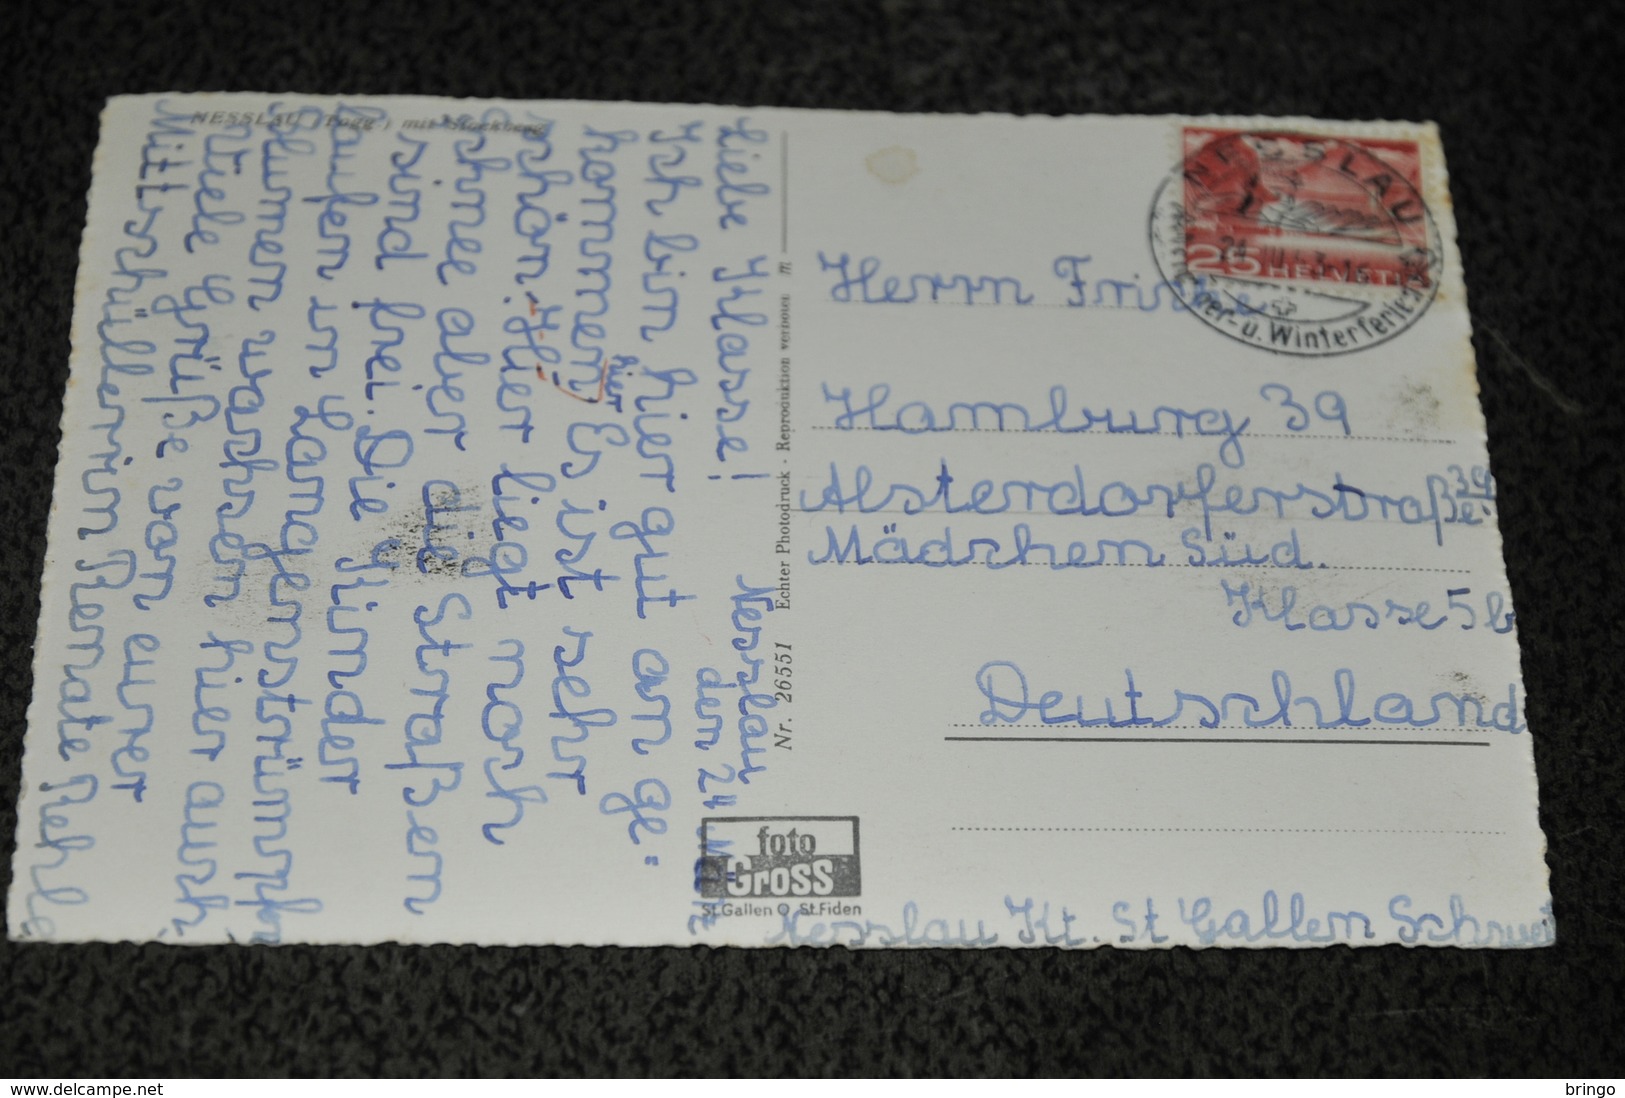 NESSLAU (Togg.) mit Stockberg
Nesslau
den 24. März
Liebe Klasse!
Ich bin hier gut an ge=
kommen. Es ist hier sehr
schön. Hier liegt noch
Schnee aber die Straßen
sind frei. Die Kinder
laufen in Langenstrümpfe
Blumen wachsen hier auch
Viele Grüße von eurer
Mittschüllerin Renate Rehl
Nr. 26551 Echter Photodruck - Reproduktion verboten m
foto
Gross
St.Gallen O St.Fiden
NESSLAU
24. III.53-16
Sommer- u. Winterferien
25 HELVETIA
Herrn
Hamburg 39
Alsterdorferstraße 39
Mädchen Süd.
Klasse 5b
Deutschland
Nesslau Kt. St Gallen Schwei
bringo
delcampe.net